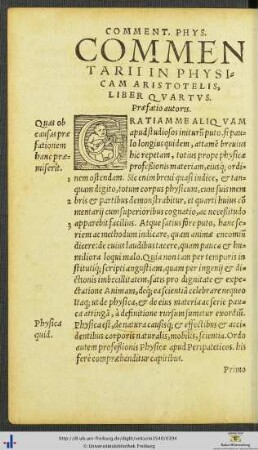 COMMENT. PHYS.
COMMEN
TARII IN PHYSI-
CAM ARISTOTELIS,
LIBER QVARTVS.
Præfatio autoris.
Quas ob
causas præ
fationem
hanc præ-
miserit.
GRATIAM ME ALIQVAM
apud studiosos initurũ puto, si pau
lo longius quidem, attamẽ breuius
hic repetam, totius prope physicæ
professionis materiam, eiusq; ordi-
nem ostendam. Sic enim breui quasi indice, & tan-
1 quam digito, totum corpus physicum, cum suis mem
2 bris & partibus demonstrabitur, et quarti huius cõ
mentarij cum superioribus cognatio, ac necessitudo
3 apparebit facilius. Atque satius fore puto, hanc se-
riem ac methodum indicare, quàm animæ encomiũ
dicere: de cuius laudibus tacere, quàm pauca & hu-
miliora loqui malo. Quia non tam per temporis in
stitutiq; scripti angustiam, quàm per ingenij & di-
ctionis imbecillitatem, satis pro dignitate & expe-
ctatione Animam, deq; ea scientiã celebrare nequeo
Itaq; ut de physica, & de eius materia ac serie pau-
ca attingã, à definitione rursum sumetur exordiũ.
Physica
quid.
Physica est, de natura causisq; & effectibus & acci
dentibus corporis naturalis, mobilis, scientia. Ordo
autem professionis Physicæ apud Peripateticos. his
ferè comprehenditur capitibus.
Primo
http://dl.ub.uni-freiburg.de/diglit/
© Universitätsbibliothek Freiburg
Baden-Württemberg